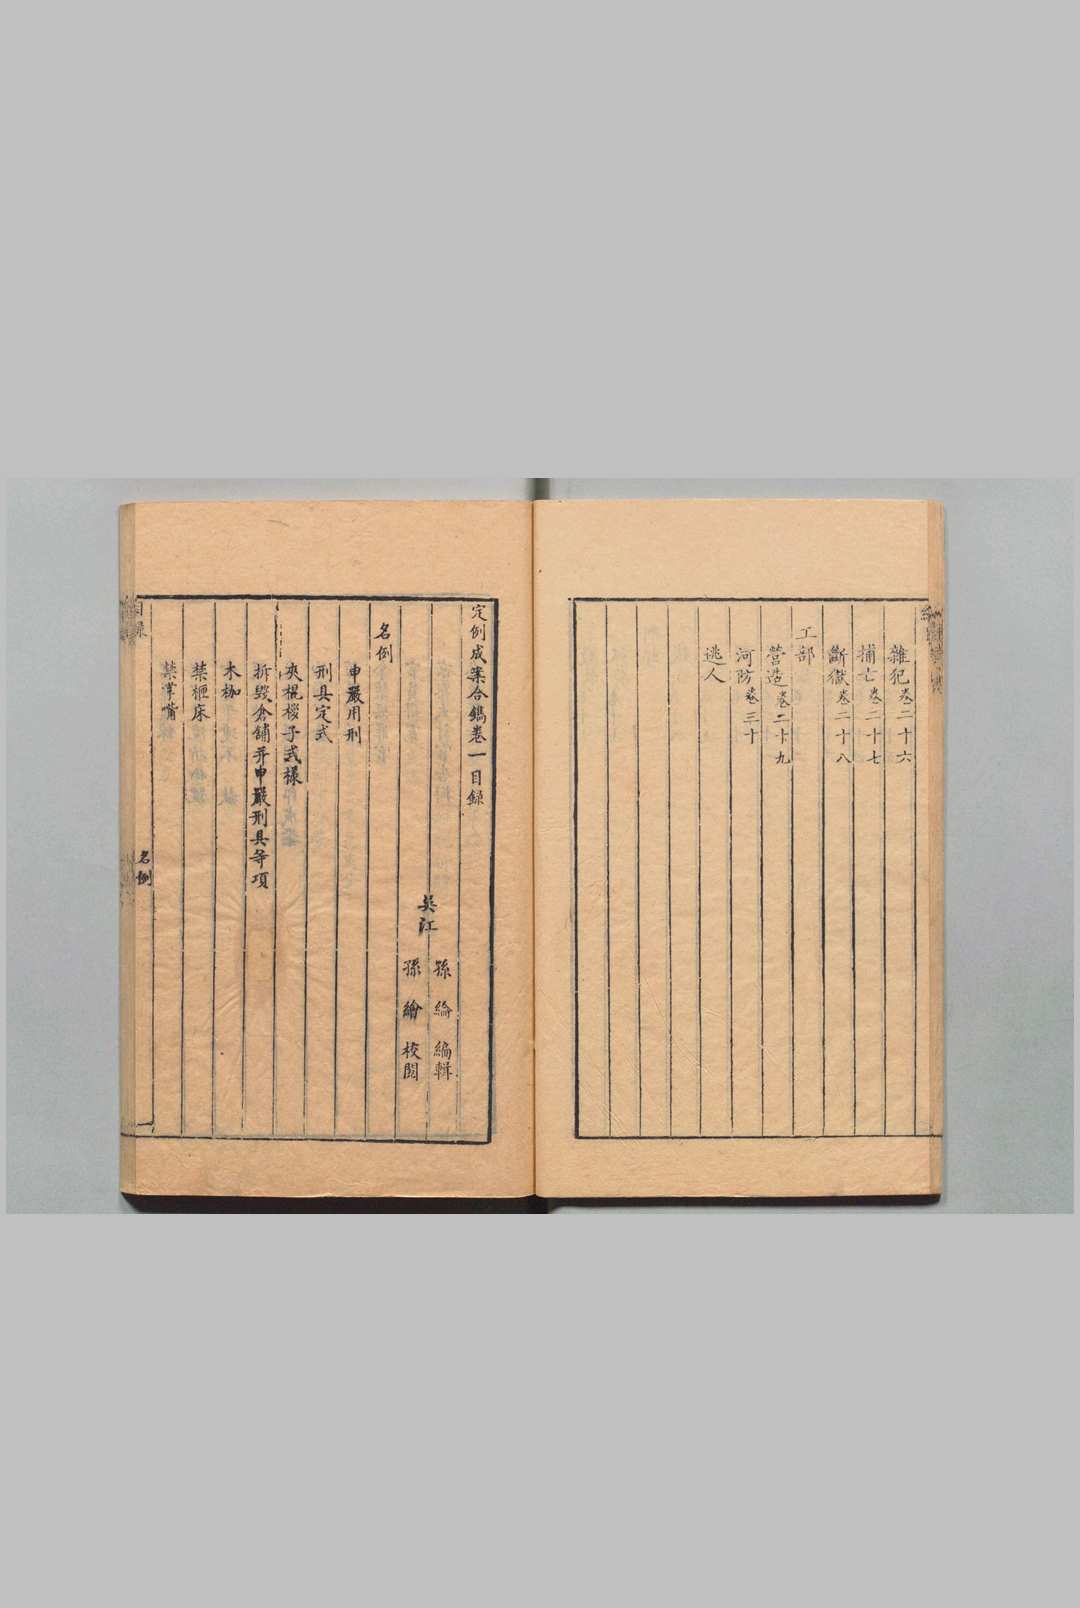 雜犯卷二十六
捕亡卷二十七
斷獄卷二十八
工部
營造卷二十九
河防卷三十
逃人
定例成案合鐫卷一目錄
吳江
孫綸編輯
孫繪校閱
名例
申嚴用刑
刑具定式
夾棍桚子式樣
拆毀倉鋪并申嚴刑具等項
木枷
禁匣床
禁掌嘴
目錄
名例
一